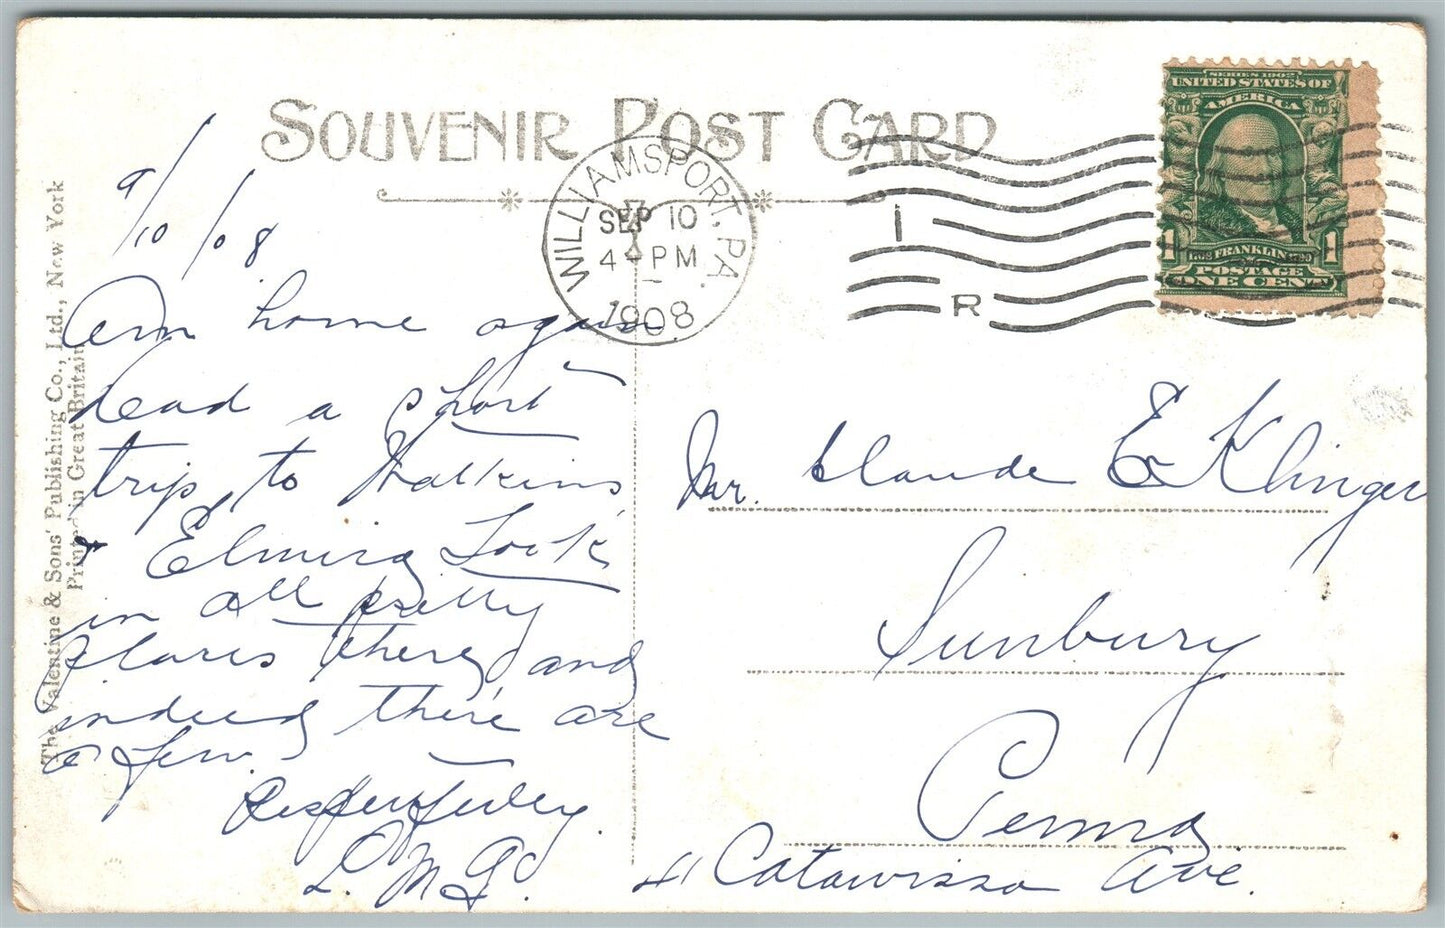 SOUVENIR POST CARD
WILLIAMSPORT, PA.
SEP 10
4 - PM
1908
1
R
SERIES 1902
UNITED STATES OF
AMERICA
1 FRANKLIN 1
POSTAGE
ONE CENT
The Valentine & Sons' Publishing Co., Ltd., New York
Printed in Great Britain
9/10/08
Am home again
had a short
trip to Watkins
& Elmira Took
in all pretty
places there and
indeed there are
a few.
Respectfully.
L. M. G.
Mr. Claude E Klinger
Sunbury
Penna
Catawissa Ave.